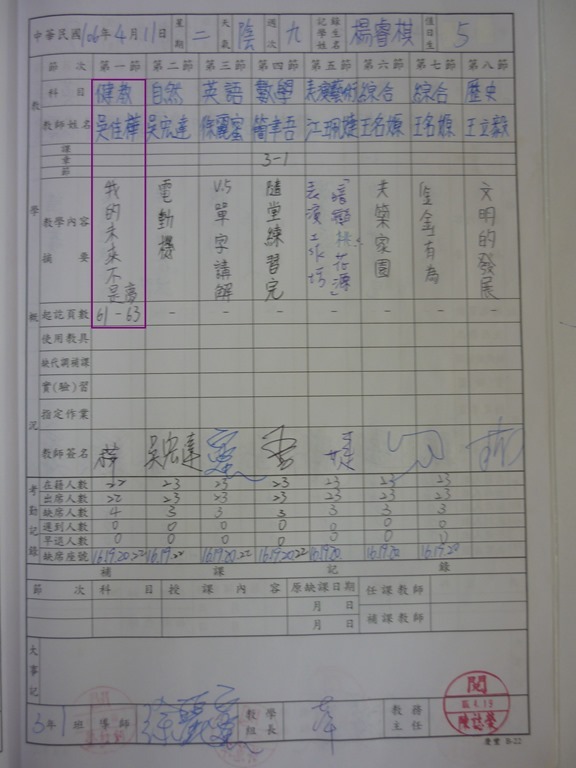 中華民國106年4月11日 星期 二 天氣 陰 週次 九 記錄學生姓名 楊睿棋 值日生 5
節次 第一節 第二節 第三節 第四節 第五節 第六節 第七節 第八節
科目 健教 自然 英語 數學 表演藝術 綜合 綜合 歷史
教師姓名 吳佳樺 吳宏達 徐麗蜜 王名嫄 王名嫄 王立毅
課章節 3-1
教學內容摘要 我的未來不是夢 電動機 U.5單字講解 隨堂練習完 「暗戀桃花源」表演工作坊 夫築家園 金金有為 文明的發展
起訖頁數 61-63 - - - - - - -
使用教具
缺代調補課
實(驗)習
指定作業
教師簽名 樺 吳宏達
教學概況
在籍人數 22 23 23 23 23 23 23
出席人數 22 23 23 23 23 23 23
缺席人數 4 3 3 3 3 3 3
遲到人數 0 0 0 0 0 0 0
早退人數 0 0 0 0 0 0 0
缺席座號 16.19.20.22 16.19.22 16.19.20.22 16.19.20.22 16.19.20 16.19.20 16.19.20
考勤記錄
補課記錄
節次 科目 授課內容 原缺課日期 任課教師
月 日
月 日 補課教師
大事記
閱
4.19
3年1班 導師 教學組長 教務主任
B-22